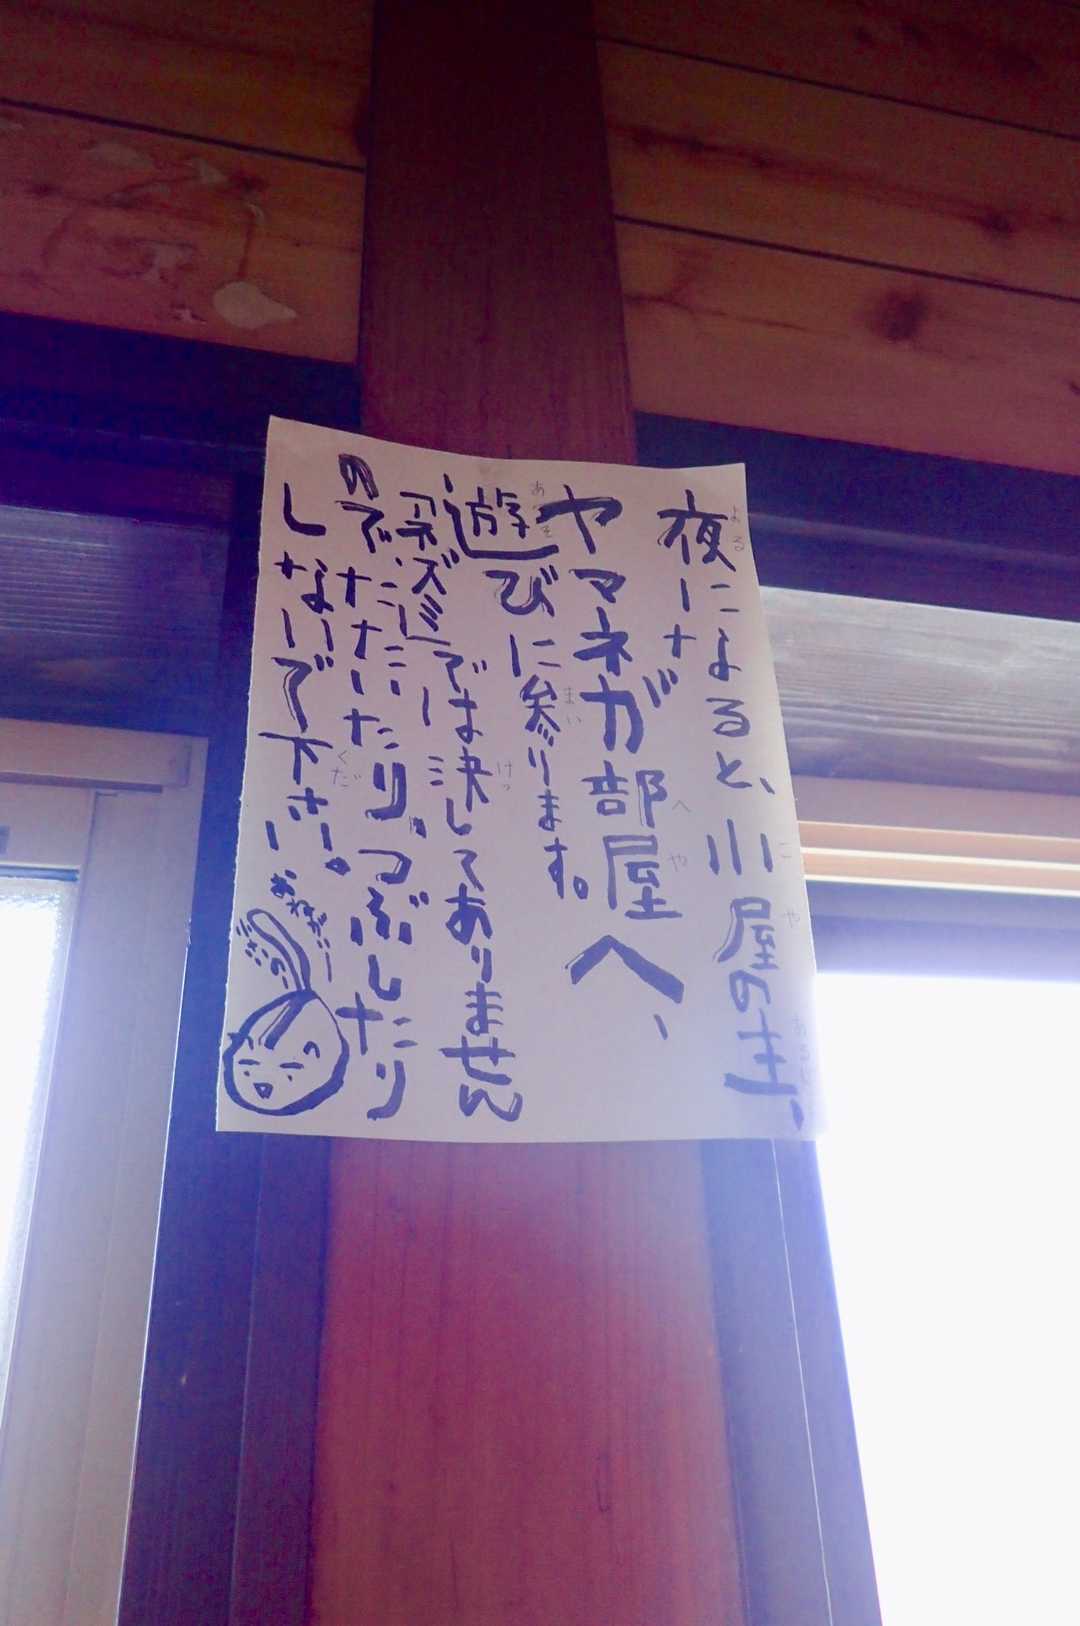 夜になると、小屋の主、
ヤマネが部屋へ、
遊びに参ります。
「ネズミ」では決してありません
ので、たたいたり、つぶしたり
しないで下さい。
よる
こや
へや
あそ
まい
けっ
くだ